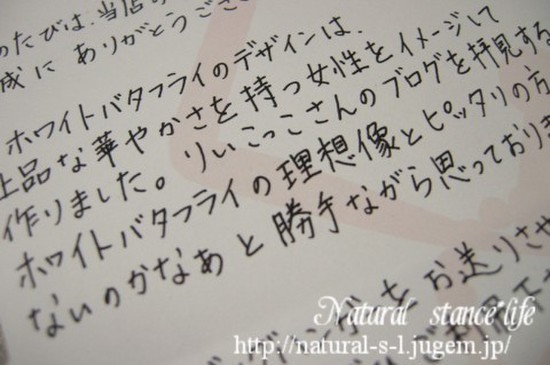 のたびは、当店の
成に ありがとうござい
ホワイトバタフライのデザインは、
上品な華やかさを持つ女性をイメージして
作りました。りぃこっこさんのブログを拝見する
ホワイトバタフライの理想像とピッタリの方
ないのかなあと勝手ながら思っておりま
をお送りさせ
Natural stance*life
http://natural-s-l.jugem.jp/